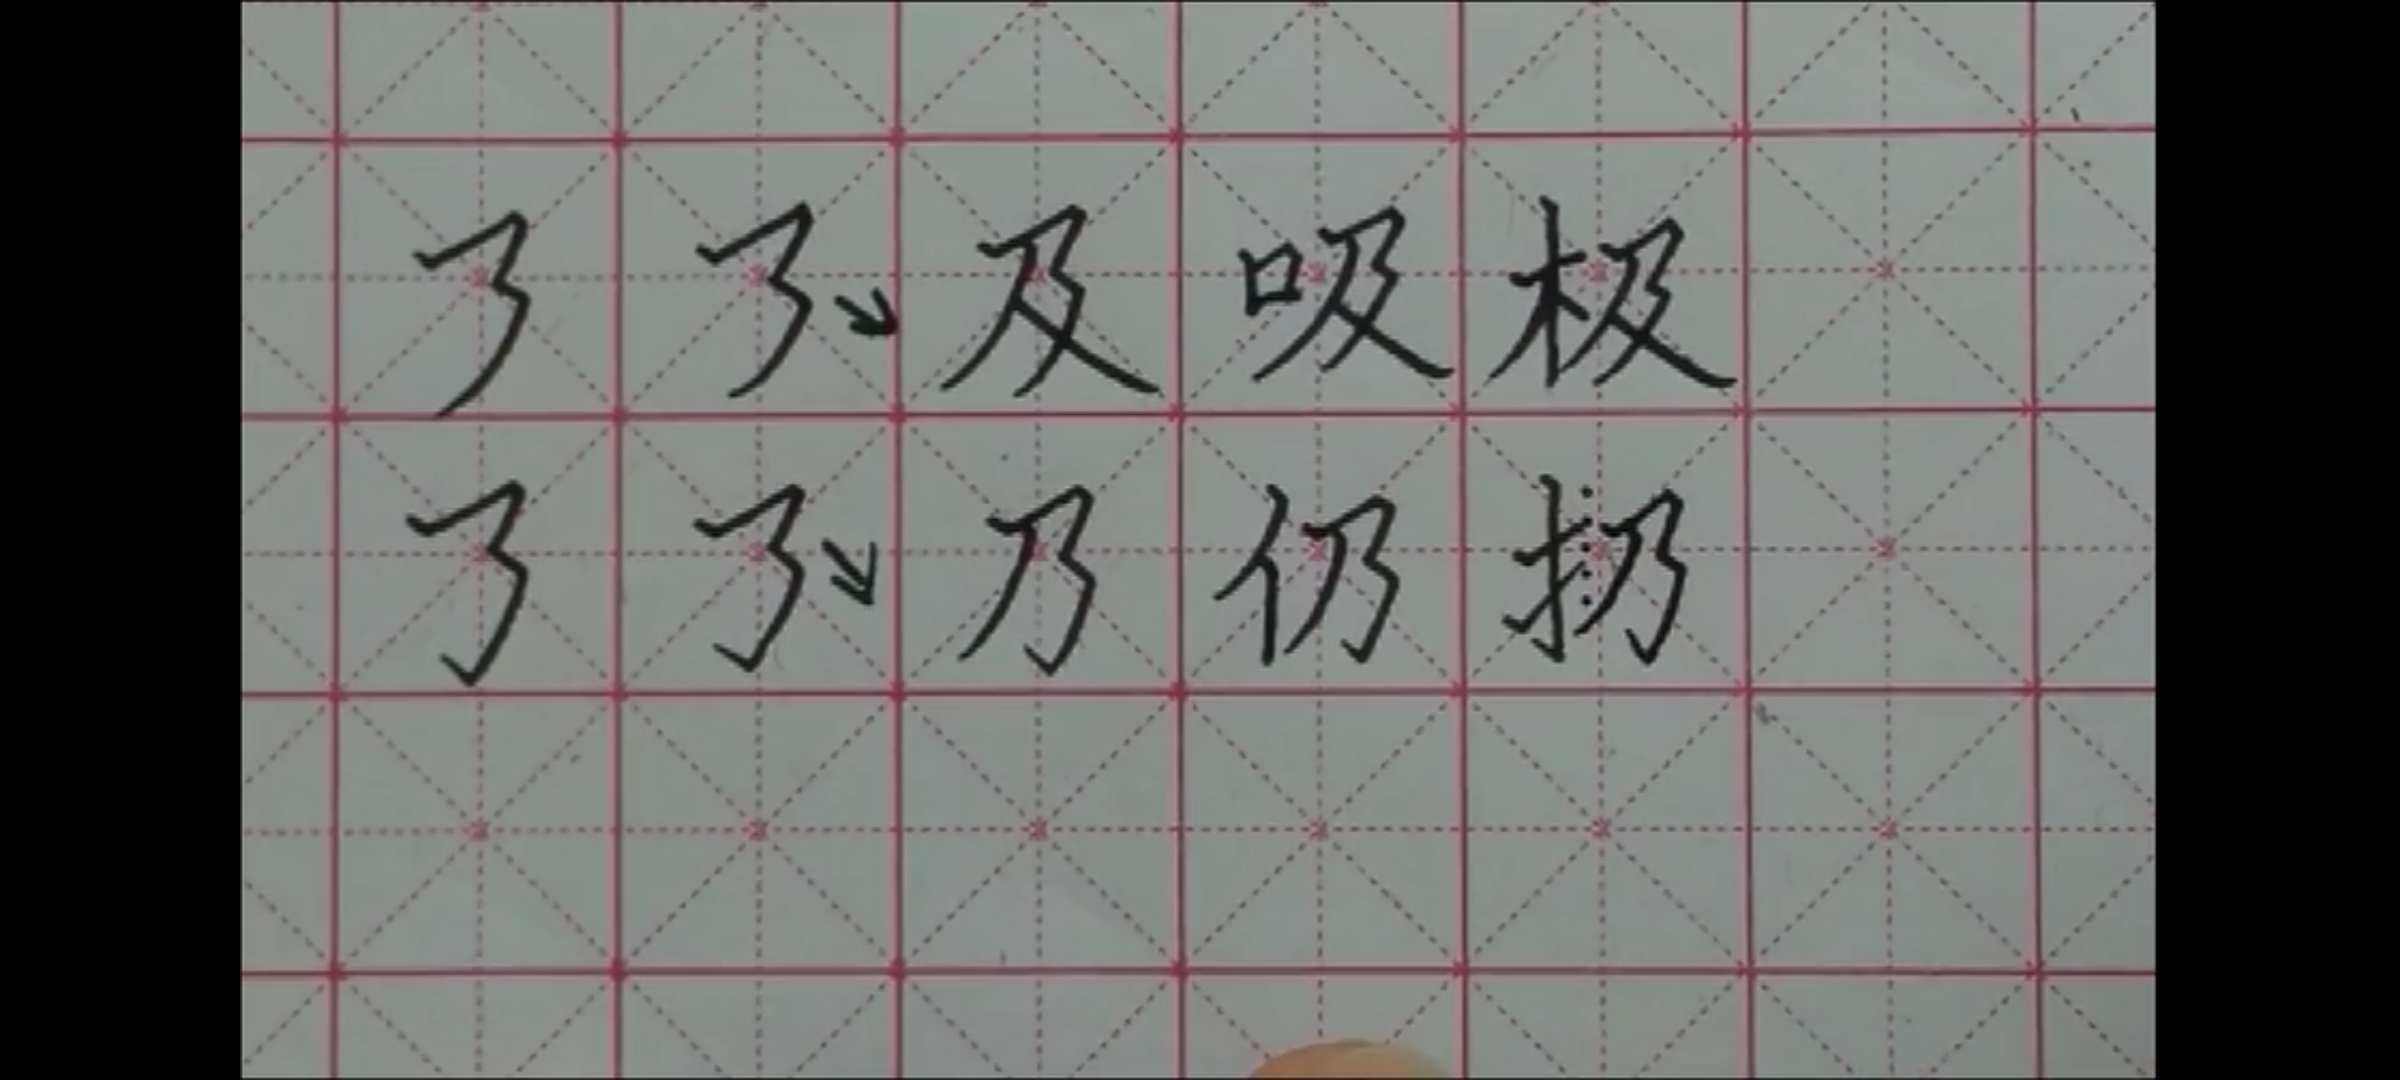 ㇋ ㇋ 及 吸 极
㇡ ㇡ 乃 仍 扔